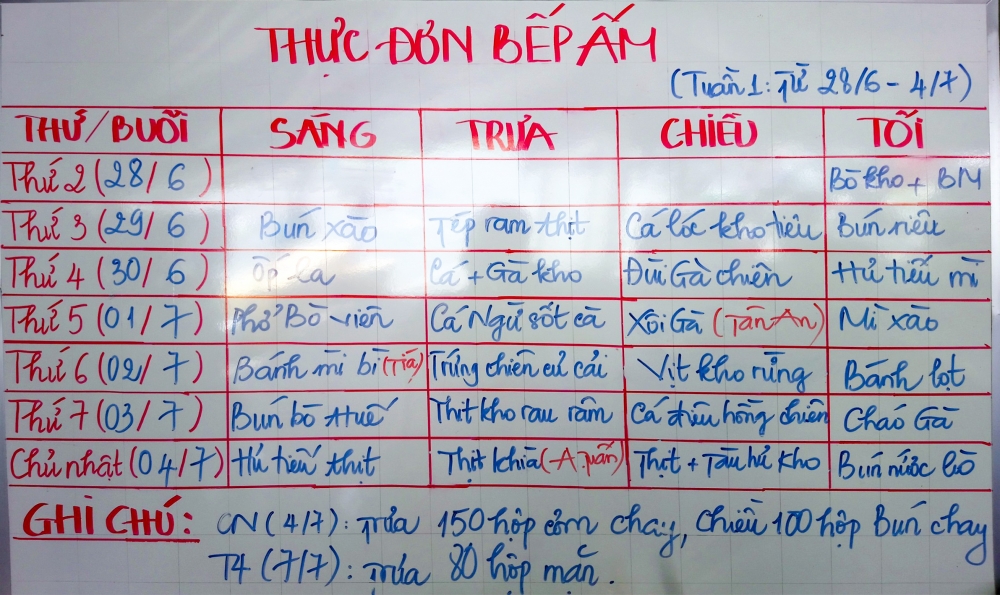 THỰC ĐƠN BẾP ẤM
(Tuần 1: Từ 28/6 - 4/7)
THỨ/BUỔI SÁNG TRƯA CHIỀU TỐI
Thứ 2 (28/6) Bò kho + BM
Thứ 3 (29/6) Bún xào Tép ram thịt Cá lóc kho tiêu Bún riêu
Thứ 4 (30/6) Ốp la Cá + Gà kho Đùi Gà chiên Hủ tiếu mì
Thứ 5 (01/7) Phở Bò viên Cá Ngừ sốt cà Xôi Gà (Tân An) Mì xào
Thứ 6 (02/7) Bánh mì bì (Tiá) Trứng chiên củ cải Vịt kho rừng Bánh lọt
Thứ 7 (03/7) Bún bò Huế Thịt kho rau răm Cá điêu hồng chiên Cháo Gà
Chủ nhật (04/7) Hủ tiếu thịt Thịt khìa (A.Tuấn) Thịt + Tàu hủ kho Bún nước lèo
GHI CHÚ: CN (4/7): Trưa 150 hộp cơm chay, chiều 100 hộp Bún chay
T4 (7/7): Trưa 80 hộp mặn.